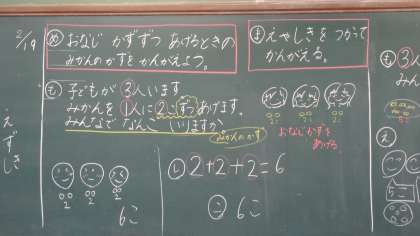 2/19
め おなじ かずずつ あげるときの
みかんのかずを かんがえよう。
も 子どもが 3人います。
みかんを 1人に 2こずつ あげます。
みんなで なんこ いりますか。
みかんのかず
2 2 2
6こ
し 2+2+2=6
こ 6こ
ま えやしきを つかって
かんがえる。
2こ 2こ 2こ
おなじかずを
あげる
えずしき
も 3
み
え